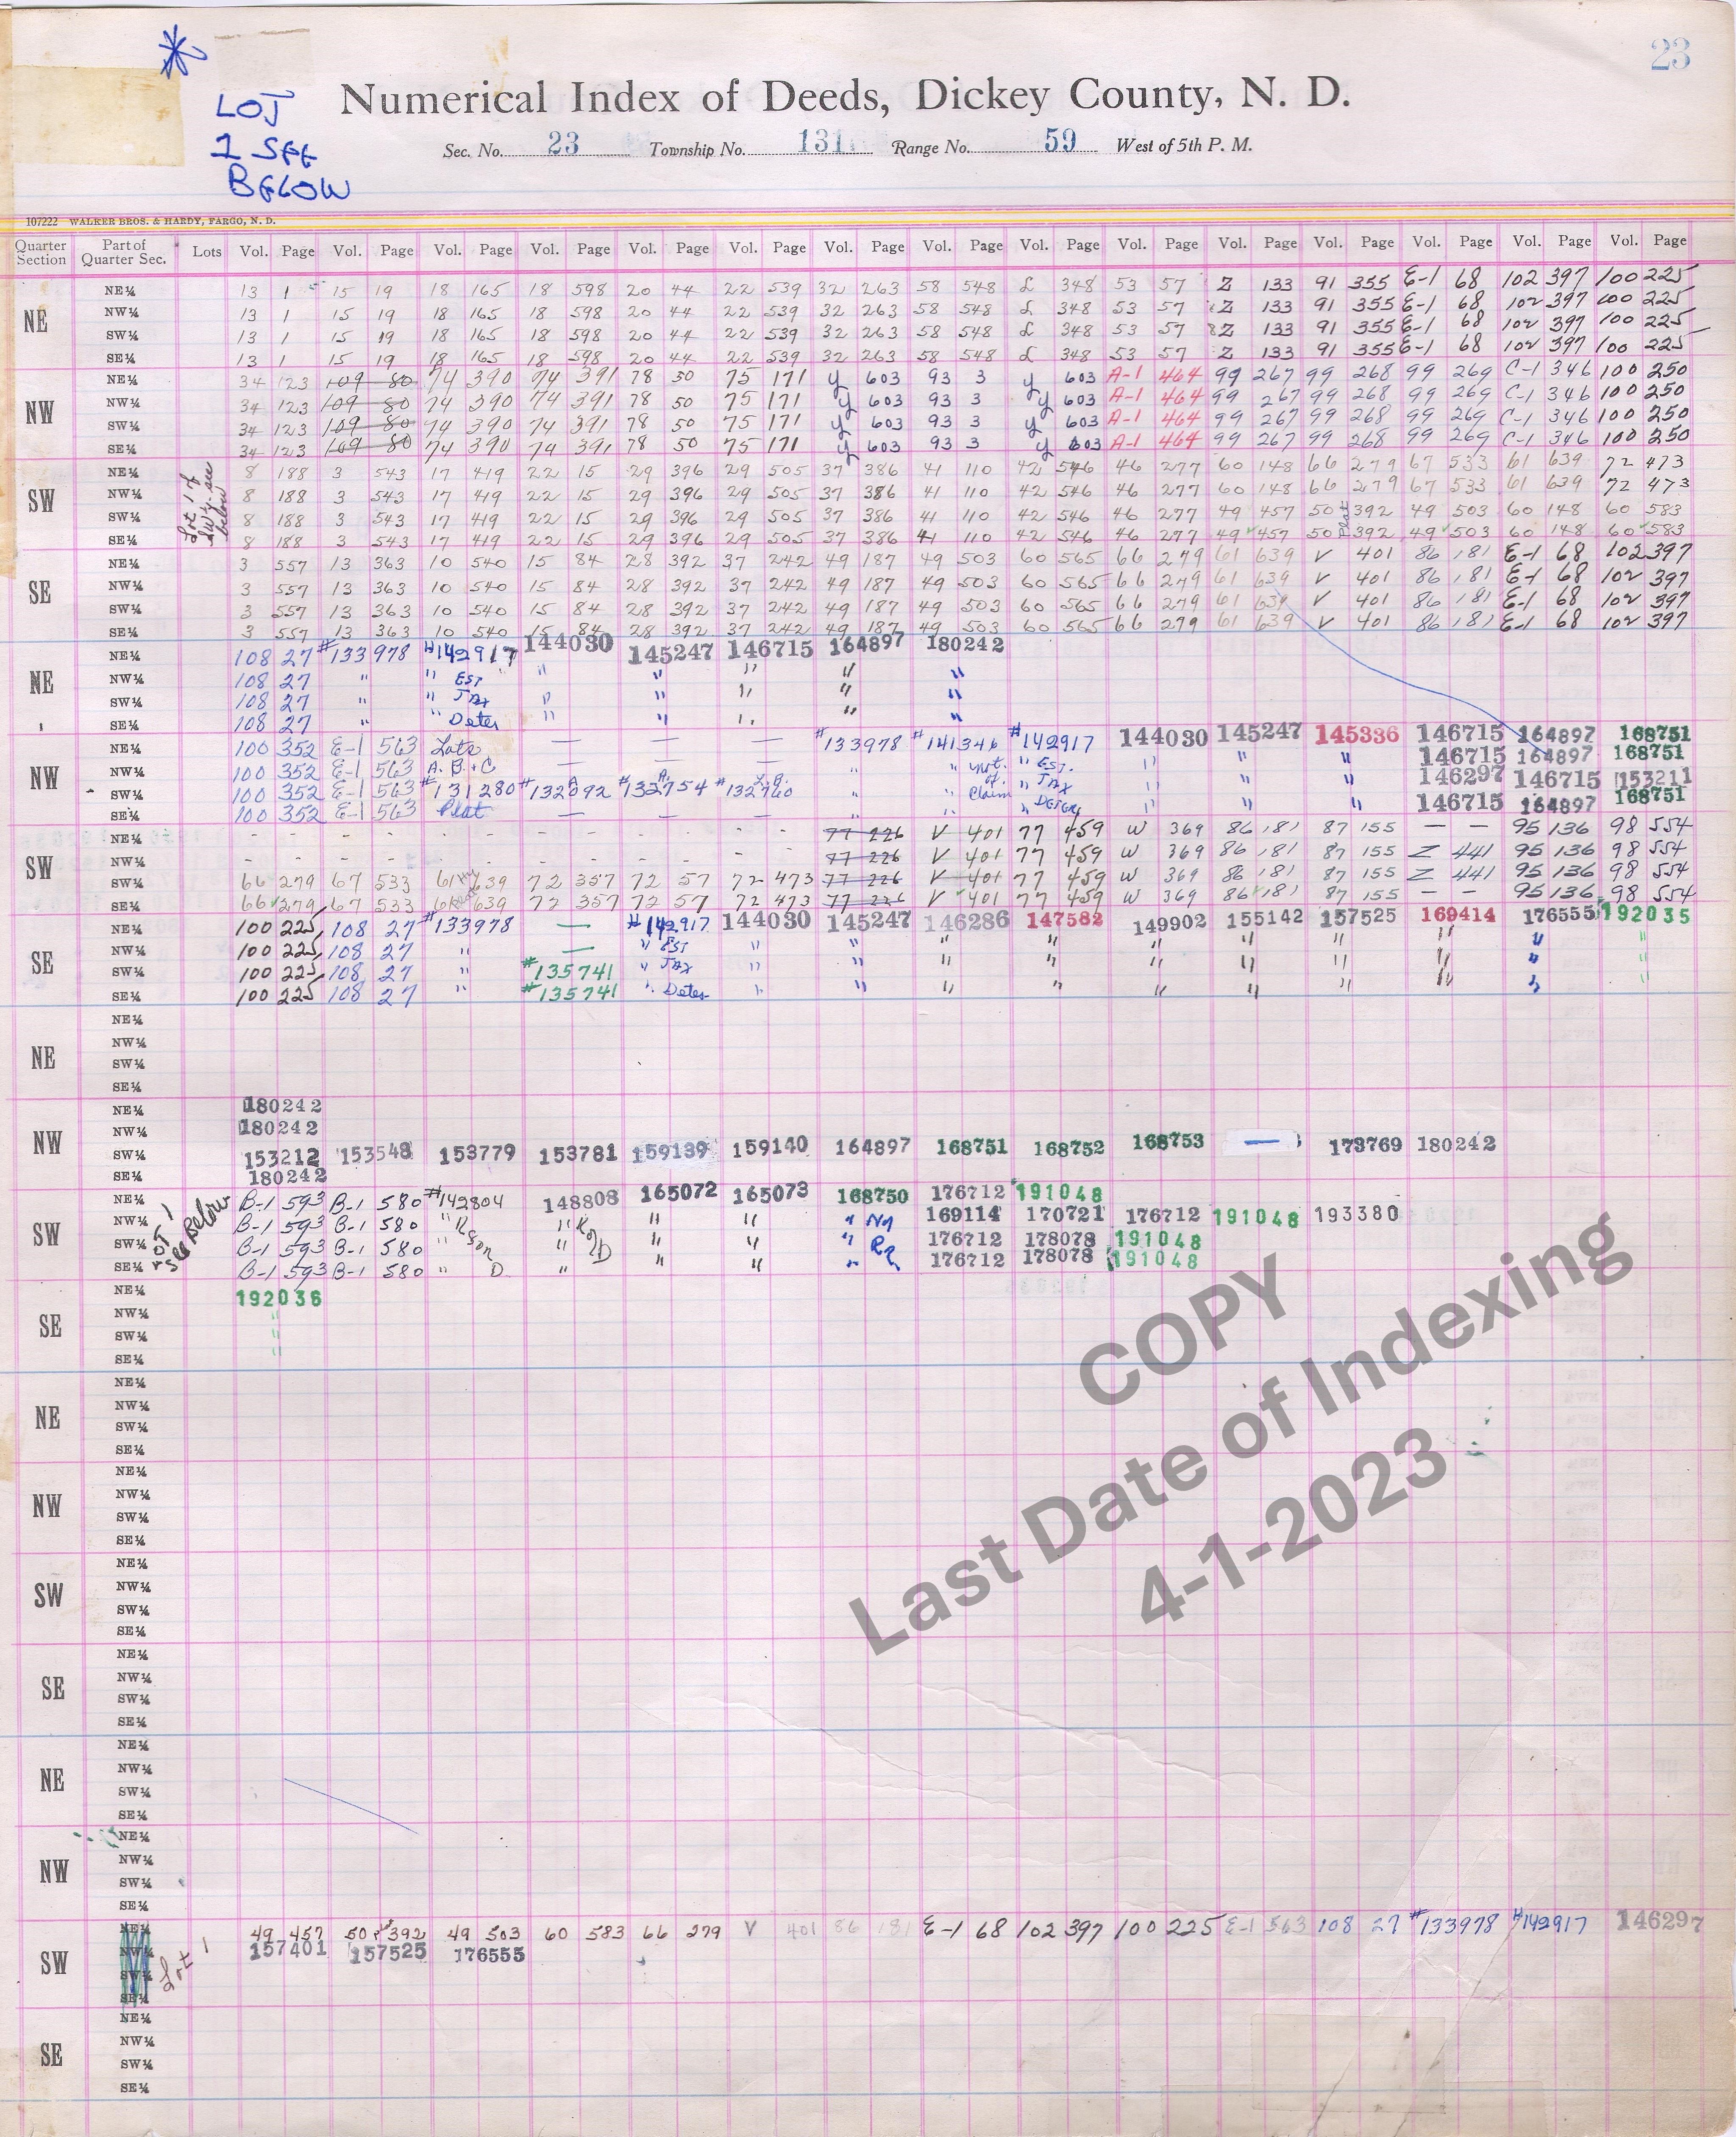 23
LOT
1 SEE
BELOW
Numerical Index of Deeds, Dickey County, N. D.
Sec. No. 23 Township No. 131 Range No. 59 West of 5th P. M.
107222 WALKER BROS. & HARDY, FARGO, N. D.
Quarter Section Part of Quarter Sec. Lots Vol. Page Vol. Page Vol. Page Vol. Page Vol. Page Vol. Page Vol. Page Vol. Page Vol. Page Vol. Page Vol. Page Vol. Page Vol. Page Vol. Page Vol. Page
NE
NE¼ 13 1 15 19 18 165 18 598 20 44 22 539 32 263 58 548 L 348 53 57 Z 133 91 355 E-1 68 102 397 100 225
NW¼ 13 1 15 19 18 165 18 598 20 44 22 539 32 263 58 548 L 348 53 57 Z 133 91 355 E-1 68 102 397 100 225
SW¼ 13 1 15 19 18 165 18 598 20 44 22 539 32 263 58 548 L 348 53 57 Z 133 91 355 E-1 68 102 397 100 225
SE¼ 13 1 15 19 18 165 18 598 20 44 22 539 32 263 58 548 L 348 53 57 Z 133 91 355 E-1 68 102 397 100 225
NW
NE¼ 34 123 109 80 74 390 74 391 78 50 75 171 y 603 93 3 y 603 A-1 464 99 267 99 268 99 269 C-1 346 100 250
NW¼ 34 123 109 80 74 390 74 391 78 50 75 171 y 603 93 3 y 603 A-1 464 99 267 99 268 99 269 C-1 346 100 250
SW¼ 34 123 109 80 74 390 74 391 78 50 75 171 y 603 93 3 y 603 A-1 464 99 267 99 268 99 269 C-1 346 100 250
SE¼ 34 123 109 80 74 390 74 391 78 50 75 171 y 603 93 3 y 603 A-1 464 99 267 99 268 99 269 C-1 346 100 250
SW
Lot 1 of SW¼ see below
NE¼ 8 188 3 543 17 419 22 15 29 396 29 505 37 386 41 110 42 546 46 277 60 148 66 279 67 533 61 639 72 473
NW¼ 8 188 3 543 17 419 22 15 29 396 29 505 37 386 41 110 42 546 46 277 60 148 66 279 67 533 61 639 72 473
SW¼ 8 188 3 543 17 419 22 15 29 396 29 505 37 386 41 110 42 546 46 277 49 457 50 Plat 392 49 503 60 148 60 583
SE¼ 8 188 3 543 17 419 22 15 29 396 29 505 37 386 41 110 42 546 46 277 49 457 50 392 49 503 60 148 60 583
SE
NE¼ 3 557 13 363 10 540 15 84 28 392 37 242 49 187 49 503 60 565 66 279 61 639 V 401 86 181 E-1 68 102 397
NW¼ 3 557 13 363 10 540 15 84 28 392 37 242 49 187 49 503 60 565 66 279 61 639 V 401 86 181 E-1 68 102 397
SW¼ 3 557 13 363 10 540 15 84 28 392 37 242 49 187 49 503 60 565 66 279 61 639 V 401 86 181 E-1 68 102 397
SE¼ 3 557 13 363 10 540 15 84 28 392 37 242 49 187 49 503 60 565 66 279 61 639 V 401 86 181 E-1 68 102 397
NE
NE¼ 108 27 #133978 #142917 144030 145247 146715 164897 180242
NW¼ 108 27 " " EST " " " " "
SW¼ 108 27 " " TAX " " " " "
SE¼ 108 27 " " Deter " " " " "
NW
NE¼ 100 352 E-1 563 Lots — — — #133978 #141346 #142917 144030 145247 145336 146715 164897 168751
NW¼ 100 352 E-1 563 A. B. + C — — — " " Not. " EST. " " " 146715 164897 168751
SW¼ 100 352 E-1 563 #131280 #132692 #132754 #132760 " of " TAX " " " 146297 146715 153211
SE¼ 100 352 E-1 563 Plat — — — " Claim " DETER " " " 146715 164897 168751
SW
NE¼ - - - - - - - - - - - - 77 226 V 401 77 459 W 369 86 181 87 155 — — 95 136 98 554
NW¼ - - - - - - - - - - - - 77 226 V 401 77 459 W 369 86 181 87 155 Z 441 95 136 98 554
SW¼ 66 279 67 533 61 639 72 357 72 57 72 473 77 226 V 401 77 459 W 369 86 181 87 155 Z 441 95 136 98 554
SE¼ 66 279 67 533 61 639 72 357 72 57 72 473 77 226 V 401 77 459 W 369 86 181 87 155 — — 95 136 98 554
SE
NE¼ 100 225 108 27 #133978 — #142917 144030 145247 146286 147582 149902 155142 157525 169414 176555 192035
NW¼ 100 225 108 27 " — " EST " " " " " " " " " "
SW¼ 100 225 108 27 " #135741 " TAX " " " " " " " " " "
SE¼ 100 225 108 27 " #135741 " Deter " " " " " " " " "
NE
NE¼
NW¼
SW¼
SE¼
NW
NE¼ 180242
NW¼ 180242
SW¼ 153212 153548 153779 153781 159139 159140 164897 168751 168752 168753 — 173769 180242
SE¼ 180242
SW
LOT 1 see Below
NE¼ B-1 593 B-1 580 #142804 148808 165072 165073 168750 176712 191048
NW¼ B-1 593 B-1 580 " " " " " 169114 170721 176712 191048 193380
SW¼ B-1 593 B-1 580 " " " " " 176712 178078 191048
SE¼ B-1 593 B-1 580 " D " " " " 176712 178078 191048
SE
NE¼ 192036
NW¼ "
SW¼ "
SE¼ "
NE
NE¼
NW¼
SW¼
SE¼
NW
NE¼
NW¼
SW¼
SE¼
SW
NE¼
NW¼
SW¼
SE¼
SE
NE¼
NW¼
SW¼
SE¼
NE
NE¼
NW¼
SW¼
SE¼
NW
NE¼
NW¼
SW¼
SE¼
SW
Lot 1
NE¼ 49 457 50 392 49 503 60 583 66 279 V 401 86 181 E-1 68 102 397 100 225 E-1 563 108 27 #133978 #142917 146297
NW¼ 157401 157525 176555
SW¼
SE¼
SE
NE¼
NW¼
SW¼
SE¼
COPY
Last Date of Indexing
4-1-2023